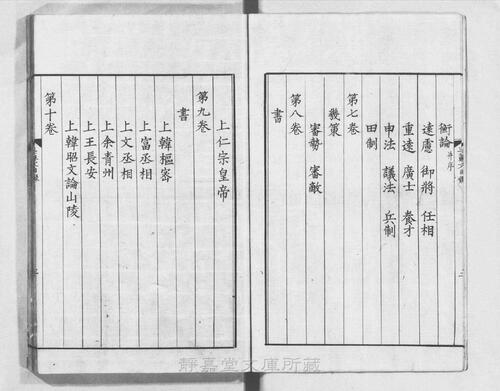 衡論并序
遠慮 御將 任相
重遠 廣士 養才
申法 議法 兵制
田制
第七卷
幾策
審勢 審敵
第八卷
書
上仁宗皇帝
第九卷
書
上韓樞密
上富丞相
上文丞相
上余青州
上王長安
上韓昭文論山陵
第十卷
靜嘉堂文庫所藏